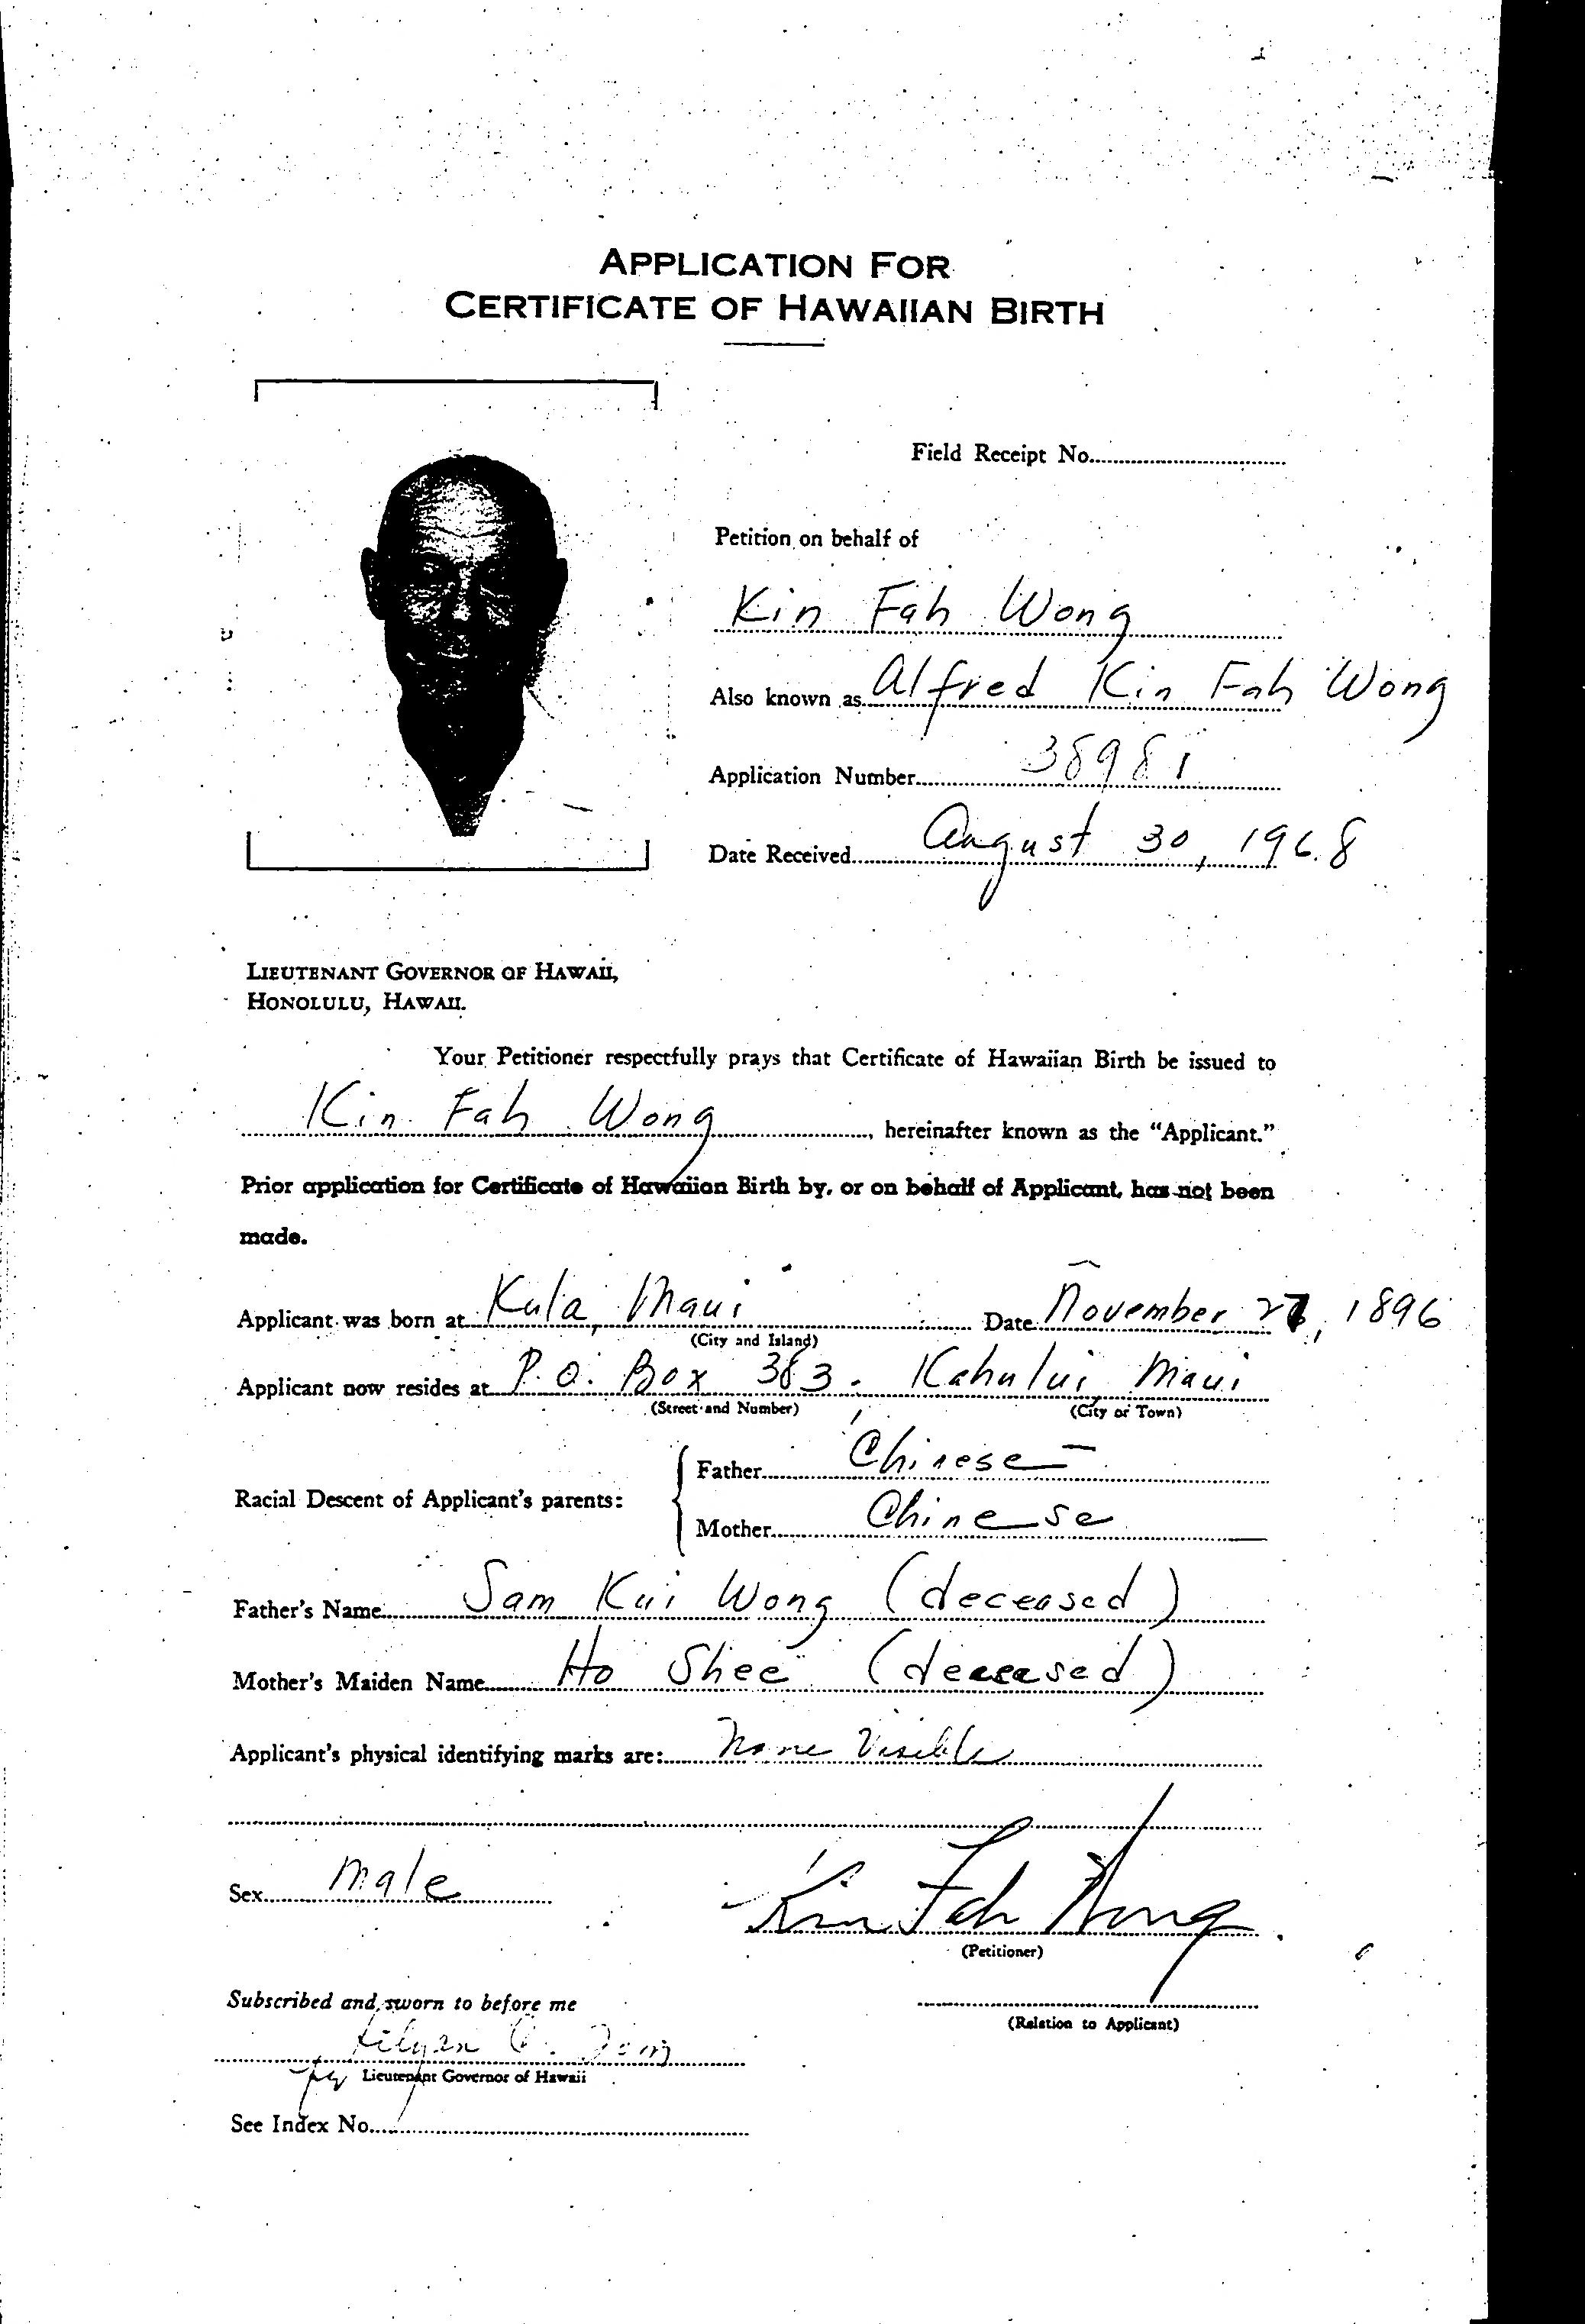 APPLICATION FOR
CERTIFICATE OF HAWAIIAN BIRTH
Field Receipt No.
Petition on behalf of
Kin Fah Wong
Also known as Alfred Kin Fah Wong
Application Number 38981
Date Received August 30, 1968
LIEUTENANT GOVERNOR OF HAWAII,
HONOLULU, HAWAII.
Your Petitioner respectfully prays that Certificate of Hawaiian Birth be issued to
Kin Fah Wong, hereinafter known as the "Applicant."
Prior application for Certificate of Hawaiian Birth by, or on behalf of Applicant, has not been
made.
Applicant was born at Kula, Maui Date November , 1896
(City and Island)
Applicant now resides at P.O. Box 383. Kahului, Maui
(Street and Number) (City or Town)
Father Chinese
Racial Descent of Applicant's parents:
Mother Chinese
Father's Name Sam Kui Wong (deceased)
Mother's Maiden Name Ho Shee (deceased)
Applicant's physical identifying marks are: None Visible
Sex male
Kin Fah Wong
(Petitioner)
Subscribed and sworn to before me
(Relation to Applicant)
Lieutenant Governor of Hawaii
See Index No.